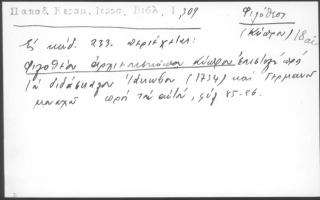 Παπαδ. Κεραμ. Ιεροσ. Βιβλ. 1, 309
Φιλόθεος
(Κύπρου) 18 αἰ.
Ἐν κώδ. 233. περιέχεται:
Φιλοθέου ἀρχιεπισκόπου Κύπρου ἐπιστολὴ πρὸς
τὸν διδάσκαλον Ἰάκωβον (1734) καὶ Γερμανοῦ
μοναχοῦ πρὸς τὸν αὐτόν, φύλ 85-86.